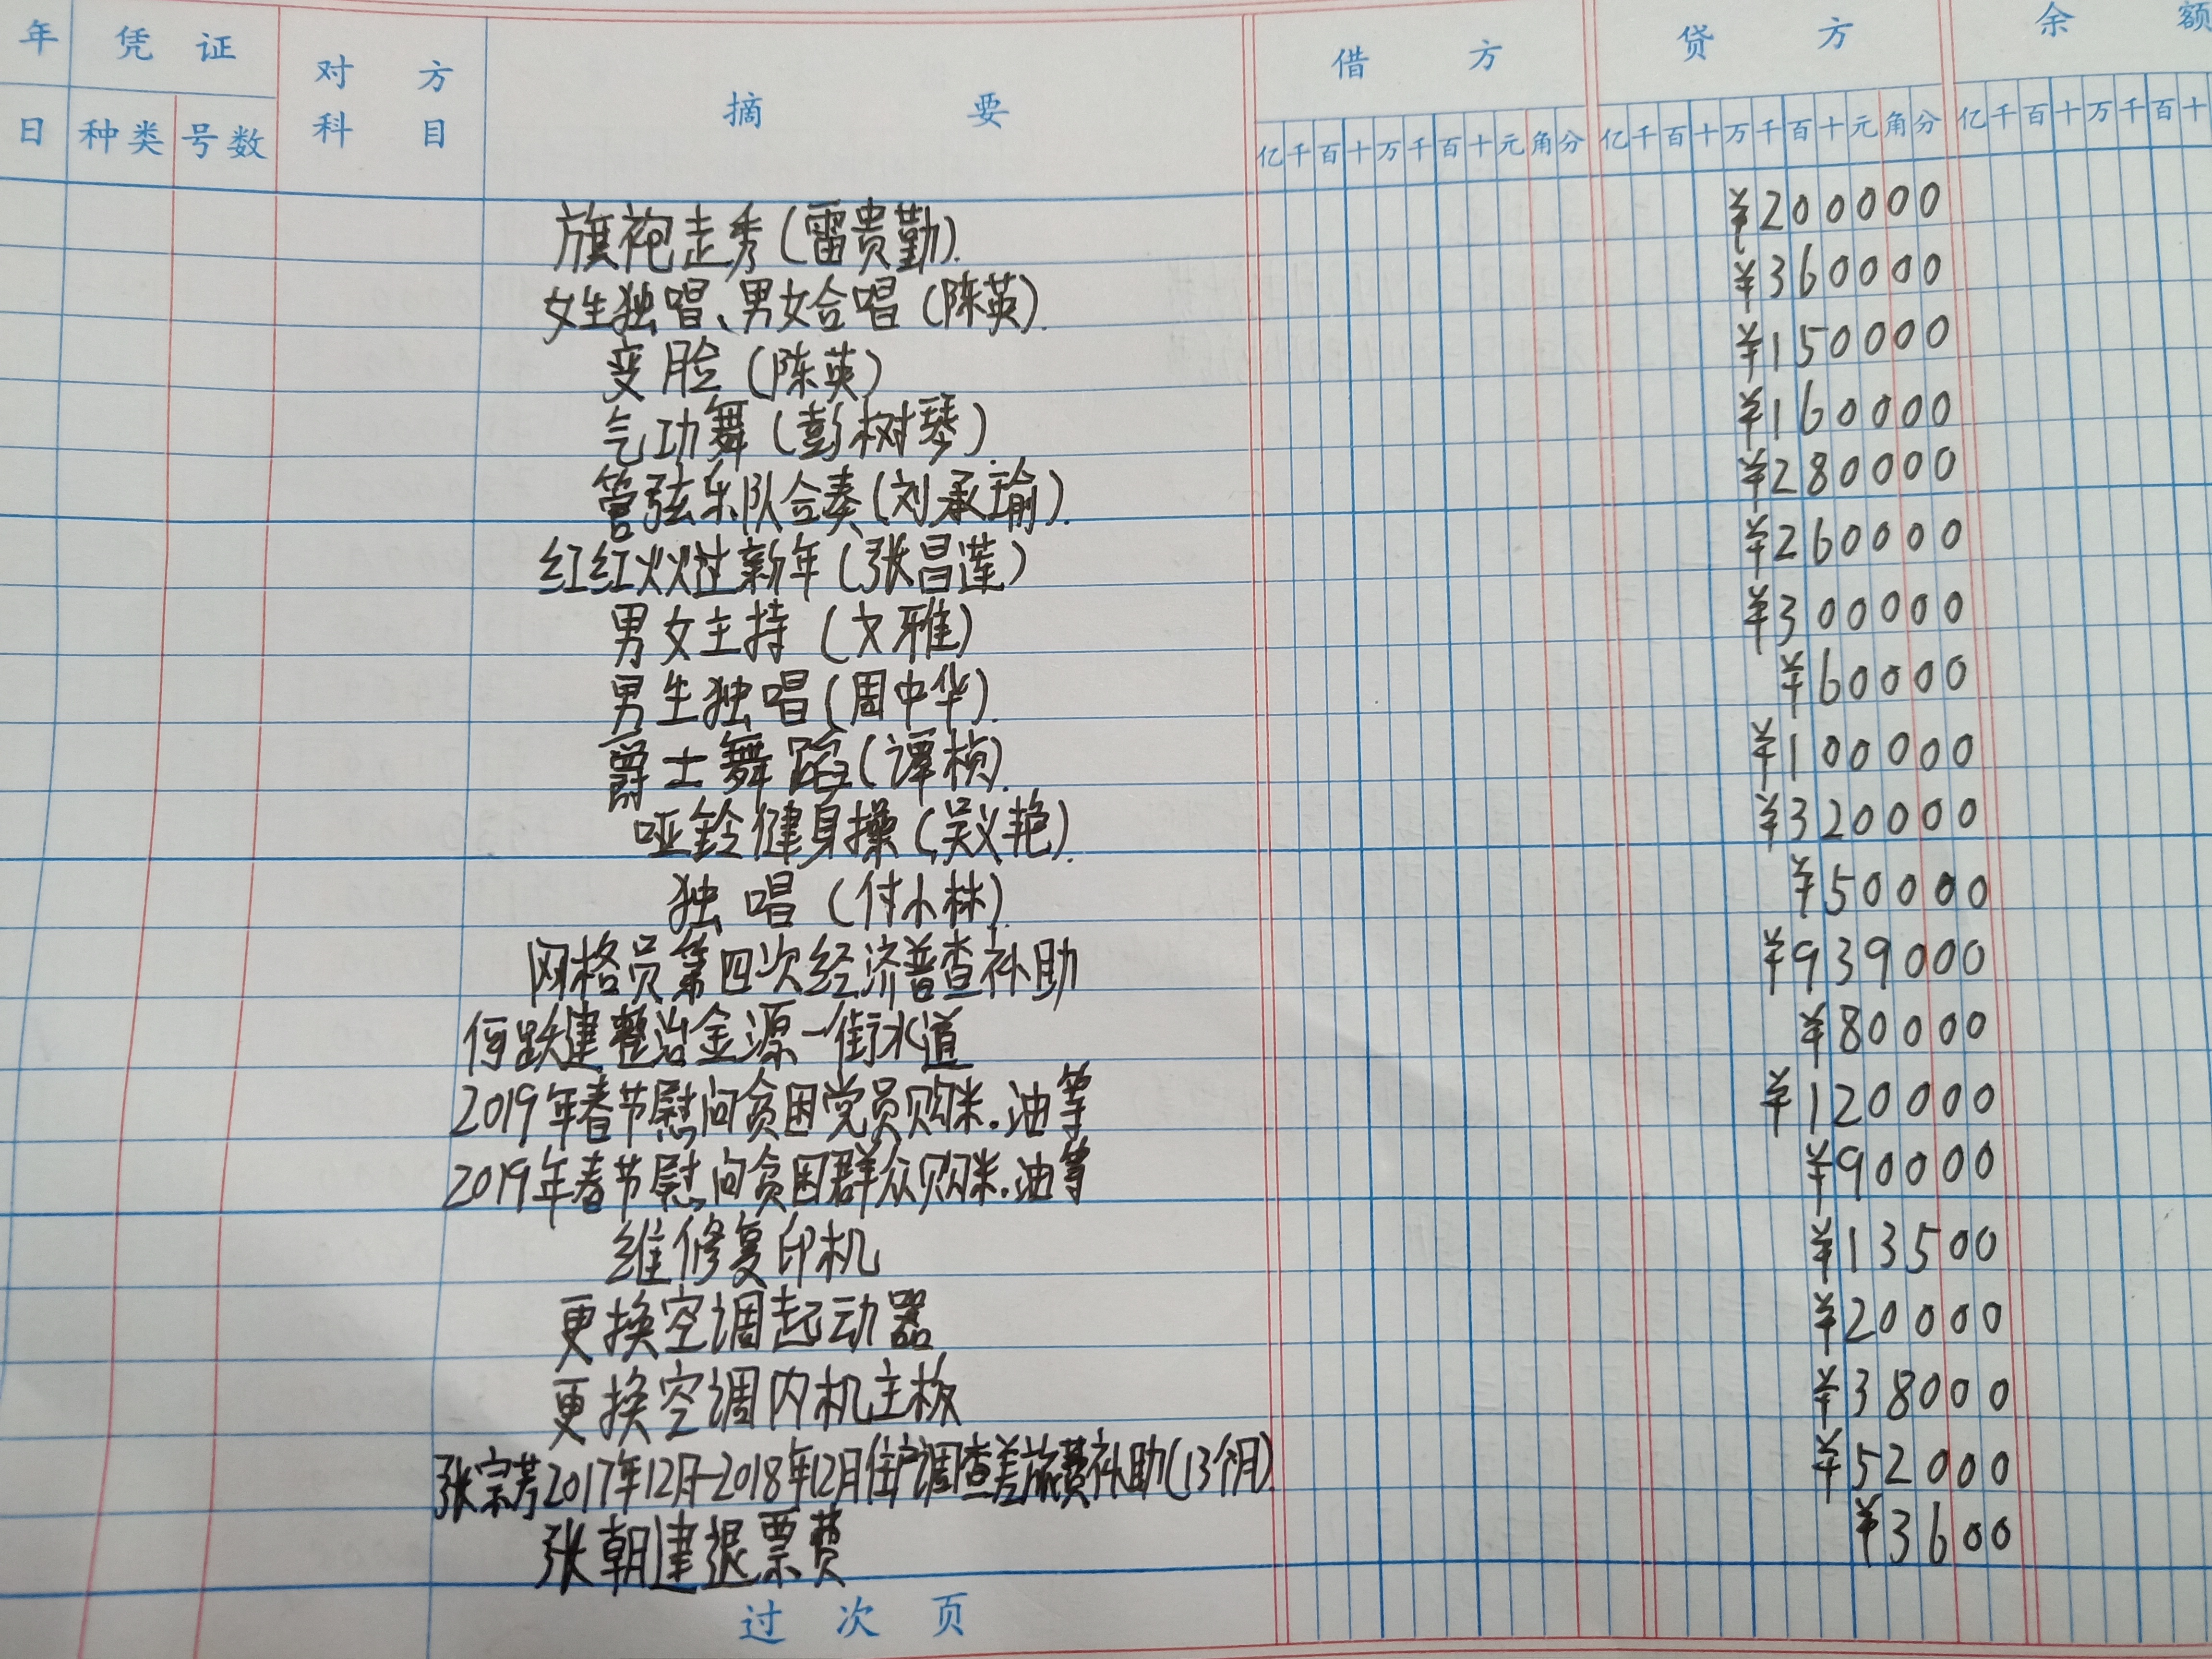 年 凭 证 对 方 摘 要 借 方 贷 方 余 额
日 种类 号数 科 目 亿千百十万千百十元角分 亿千百十万千百十元角分 亿千百十万千百十
旗袍走秀(雷贵勤). ¥200000
女生独唱、男女合唱(陈英). ¥360000
变脸(陈英) ¥150000
气功舞(彭树琴). ¥160000
管弦乐队合奏(刘承瑜). ¥280000
红红火火过新年(张昌莲) ¥260000
男女主持(文雅) ¥300000
男生独唱(周中华). ¥60000
爵士舞蹈(谭桢). ¥100000
哑铃健身操(吴义艳). ¥320000
独唱(付小林). ¥50000
网格员第四次经济普查补助 ¥939000
何跃建整治金源一街水道 ¥80000
2019年春节慰问贫困党员购米.油等 ¥120000
2019年春节慰问贫困群众购米.油等 ¥90000
维修复印机 ¥13500
更换空调起动器 ¥20000
更换空调内机主板 ¥38000
张宗芳2017年12月-2018年12月住户调查差旅费补助(13个月). ¥52000
张朝建退票费 ¥3600
过次页